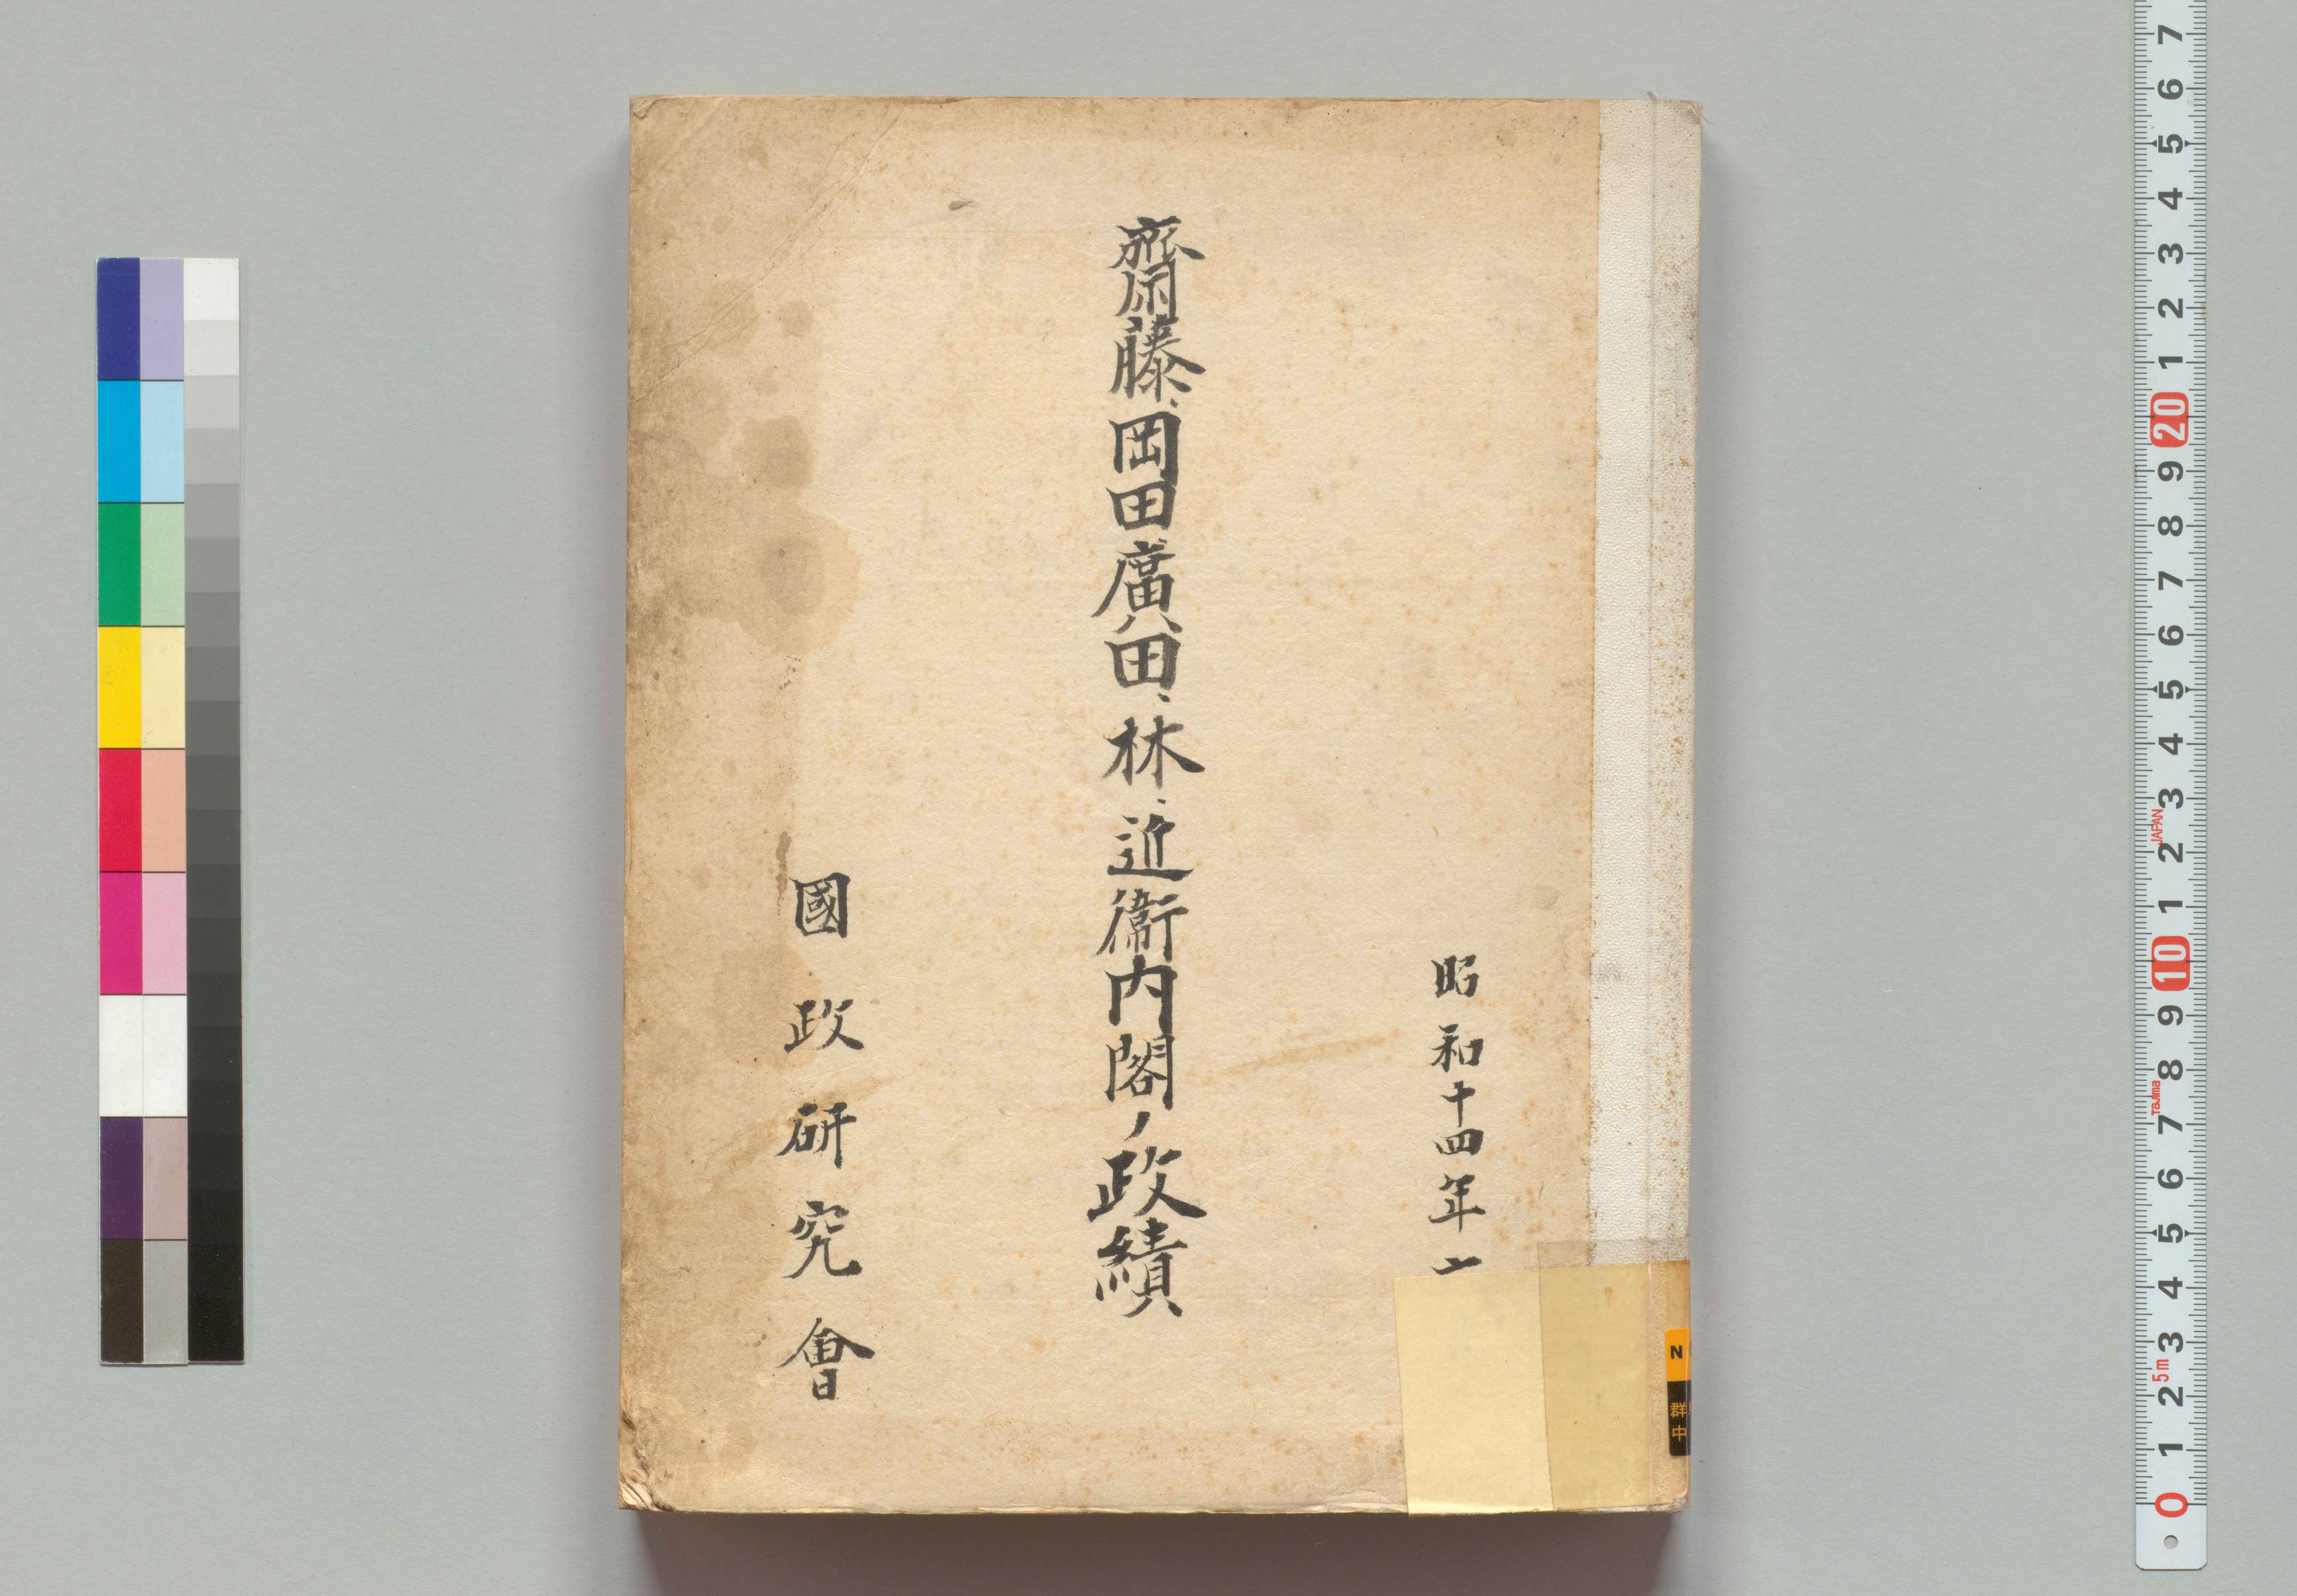 昭和十四年
齋藤、岡田、廣田、林、近衞内閣ノ政績
國政研究會
N
群
中
7
6
5
4
3
2
1
20
9
8
7
6
5
4
3
JAPAN
2
1
10
9
8
Tajima
7
6
5
4
3
5m
2
1
0